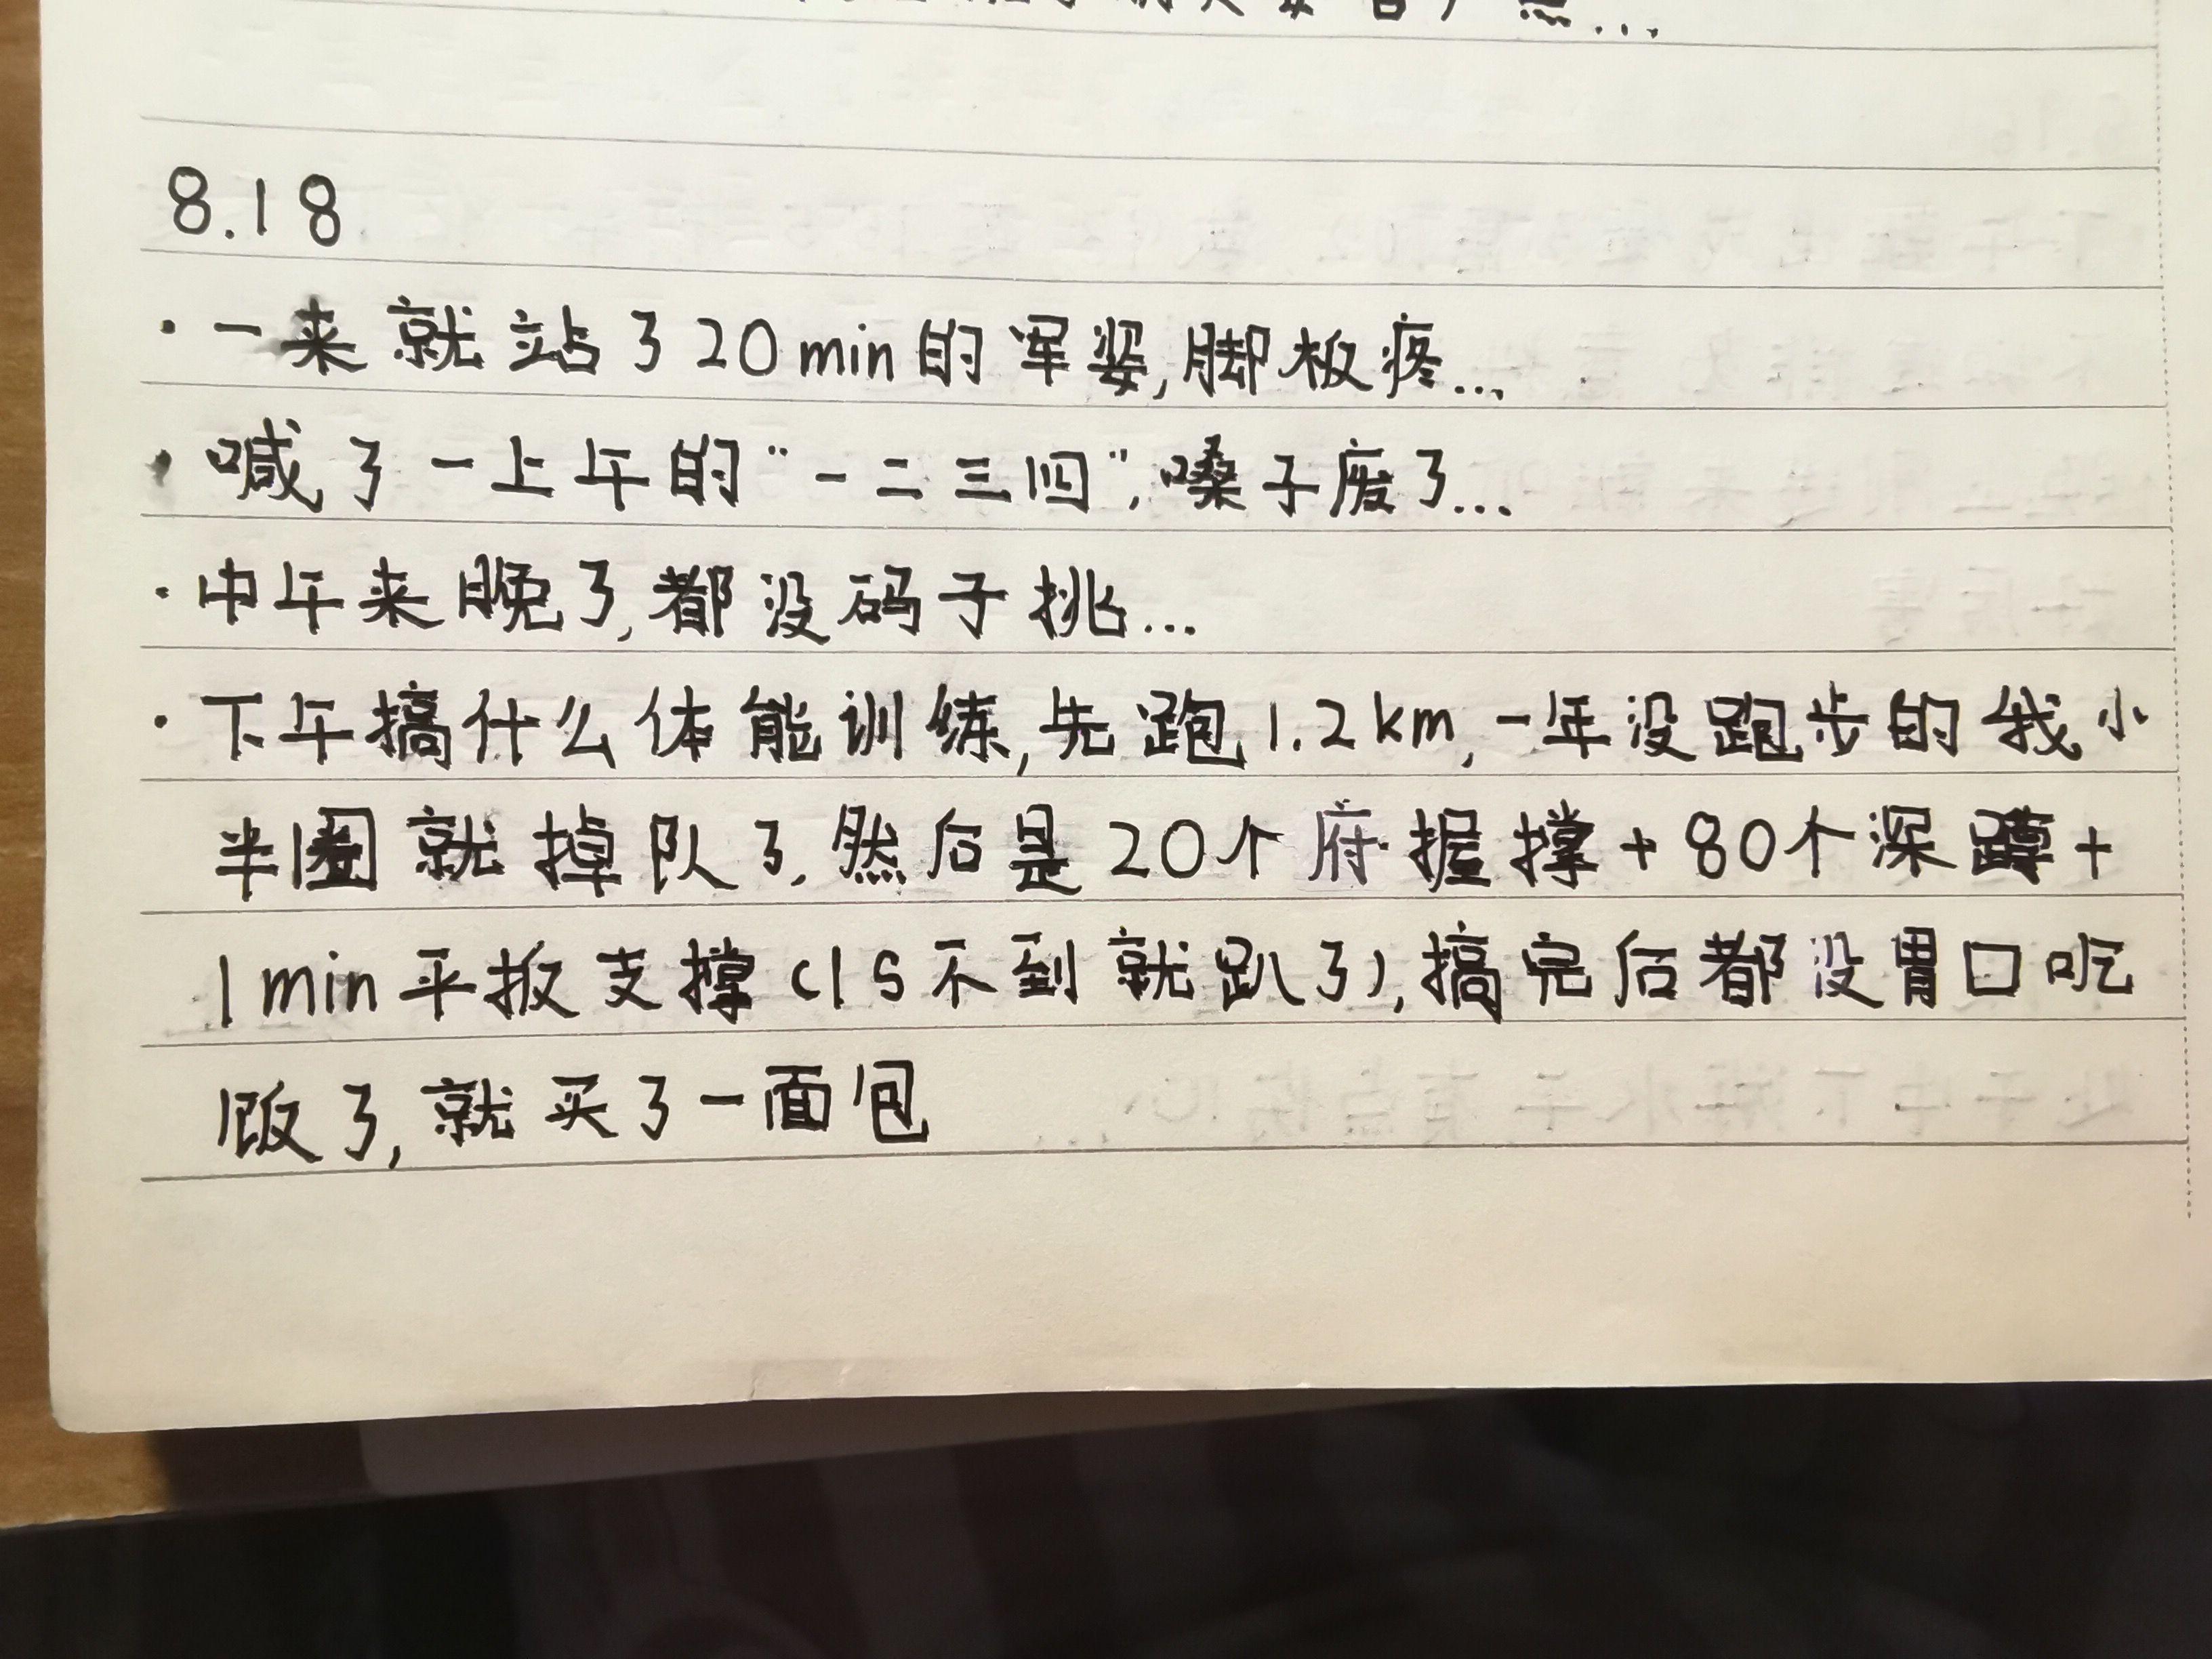 8.18
·一来就站了20min的军姿,脚板疼...
·喊了一上午的"一二三四",嗓子废了...
·中午来晚了,都没码子挑...
·下午搞什么体能训练,先跑1.2km,一年没跑步的我小
半圈就掉队了.然后是20个府握撑+80个深蹲+
1min平板支撑(1s不到就趴了),搞完后都没胃口吃
饭了,就买了一面包